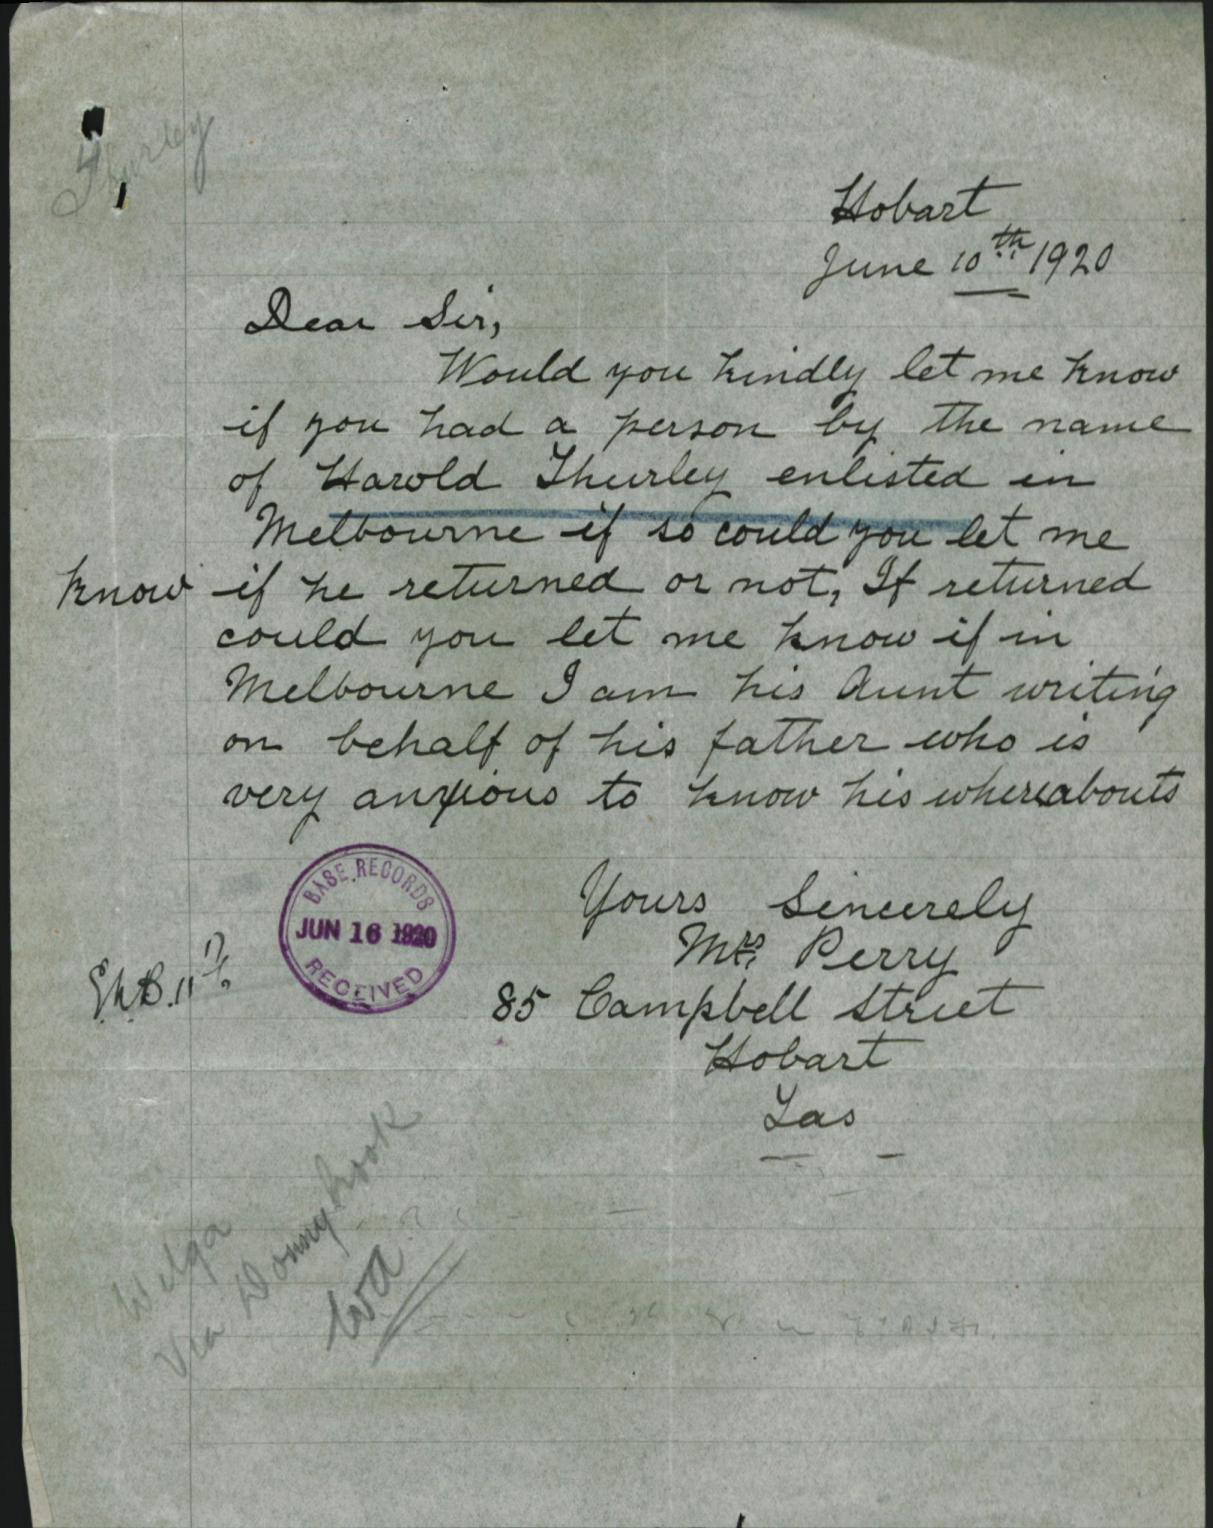 Thurley
Hobart
June 10th 1920
Dear Sir,
Would you kindly let me know
if you had a person by the name
of Harold Thurley enlisted in
Melbourne if so could you let me
know if he returned or not, If returned
could you let me know if in
Melbourne I am his Aunt writing
on behalf of his father who is
very anxious to know his whereabouts
Yours Sincerely
Mrs. Perry
85 Campbell Street
Hobart
Tas
BASE RECORDS
JUN 16 1920
RECEIVED
Wilga
Via Donnybrook
WA